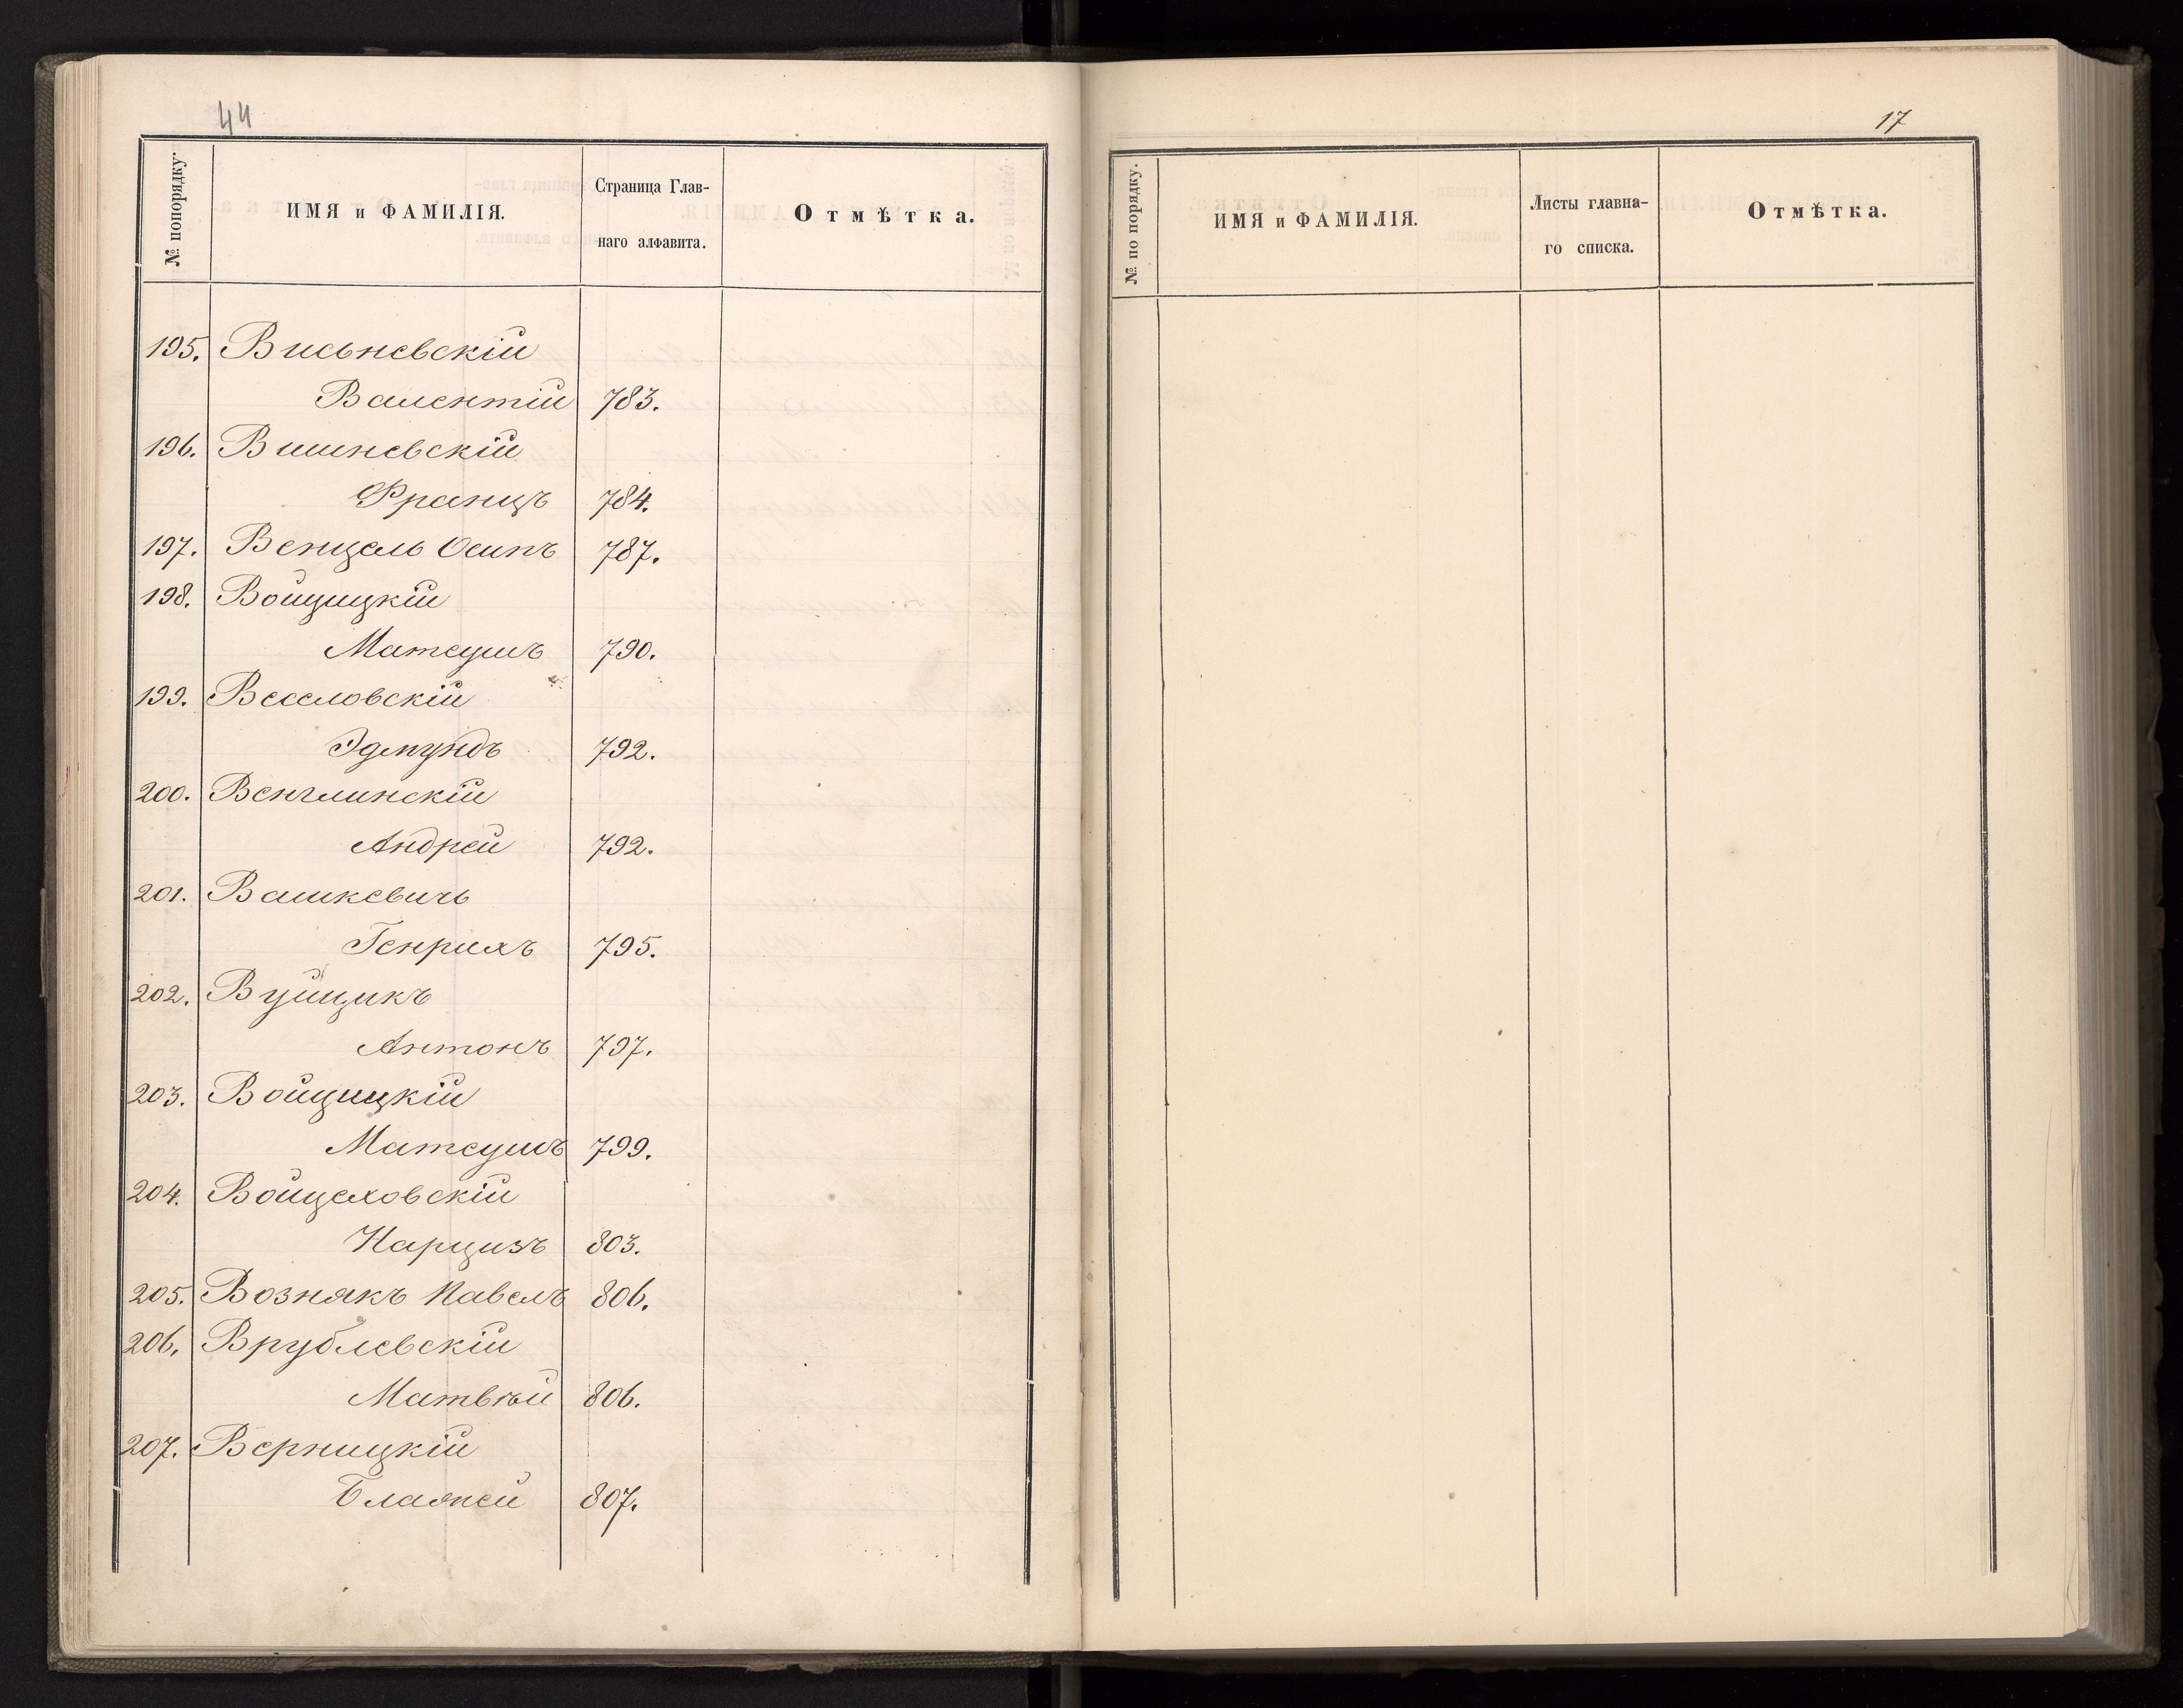 44
№ попорядку.
ИМЯ и ФАМИЛІЯ.
Страница Глав-
наго алфавита.
Отмѣтка.
195. Висьневскій
Валентій 783.
196. Вишневскій
Францъ 784.
197. Венцель Осипъ 787.
198. Войцицкій
Матеушъ 790.
199. Веселовскій
Эдмундъ 792.
200. Венглинскій
Андрей 792.
201. Вашкевичъ
Генрихъ 795.
202. Вуйцикъ
Антонъ 797.
203. Войцицкій
Матеушъ 799.
204. Войцеховскій
Нарцизъ 803.
205. Вознякъ Павелъ 806.
206. Врублевскій
Матвѣй 806.
207. Верницкій
Блажей 807.
17
№ по порядку.
ИМЯ и ФАМИЛІЯ.
Листы главна-
го списка.
Отмѣтка.